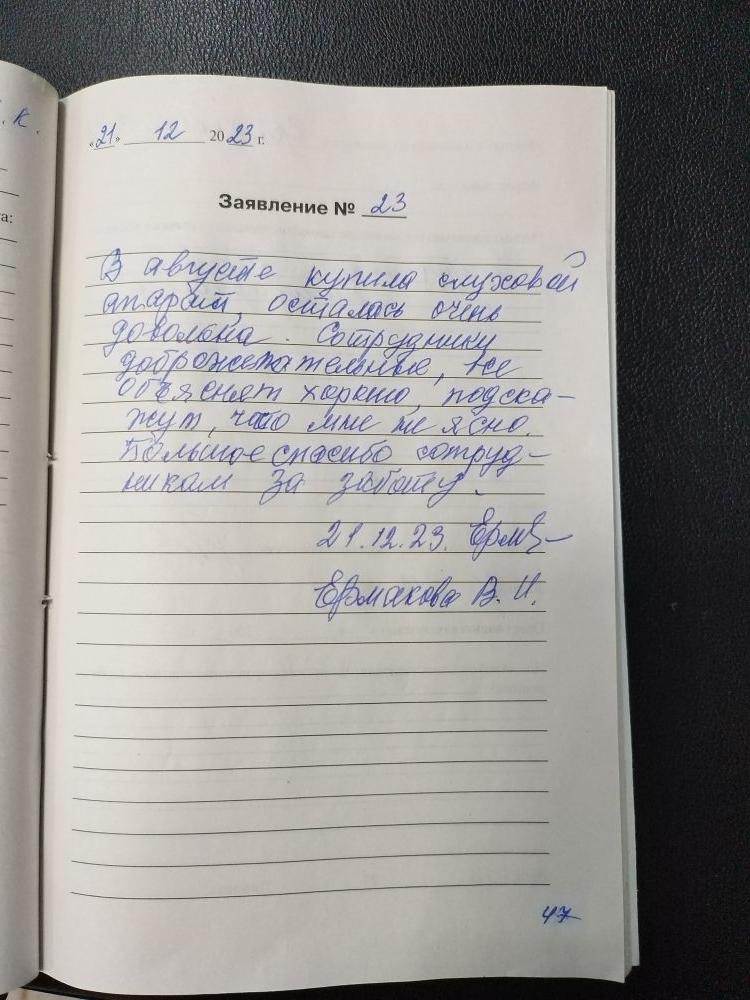 . К.
та:
«21» 12 2023 г.
Заявление № 23
В августе купила слуховой
апарат, осталась очень
довольна. Сотруднику
доброжелательные, все
объяснят хорошо, подска-
жут, что мне не ясно.
Большое спасибо сотруд-
никам за заботу.
21.12.23.
Ермакова В. И.
47